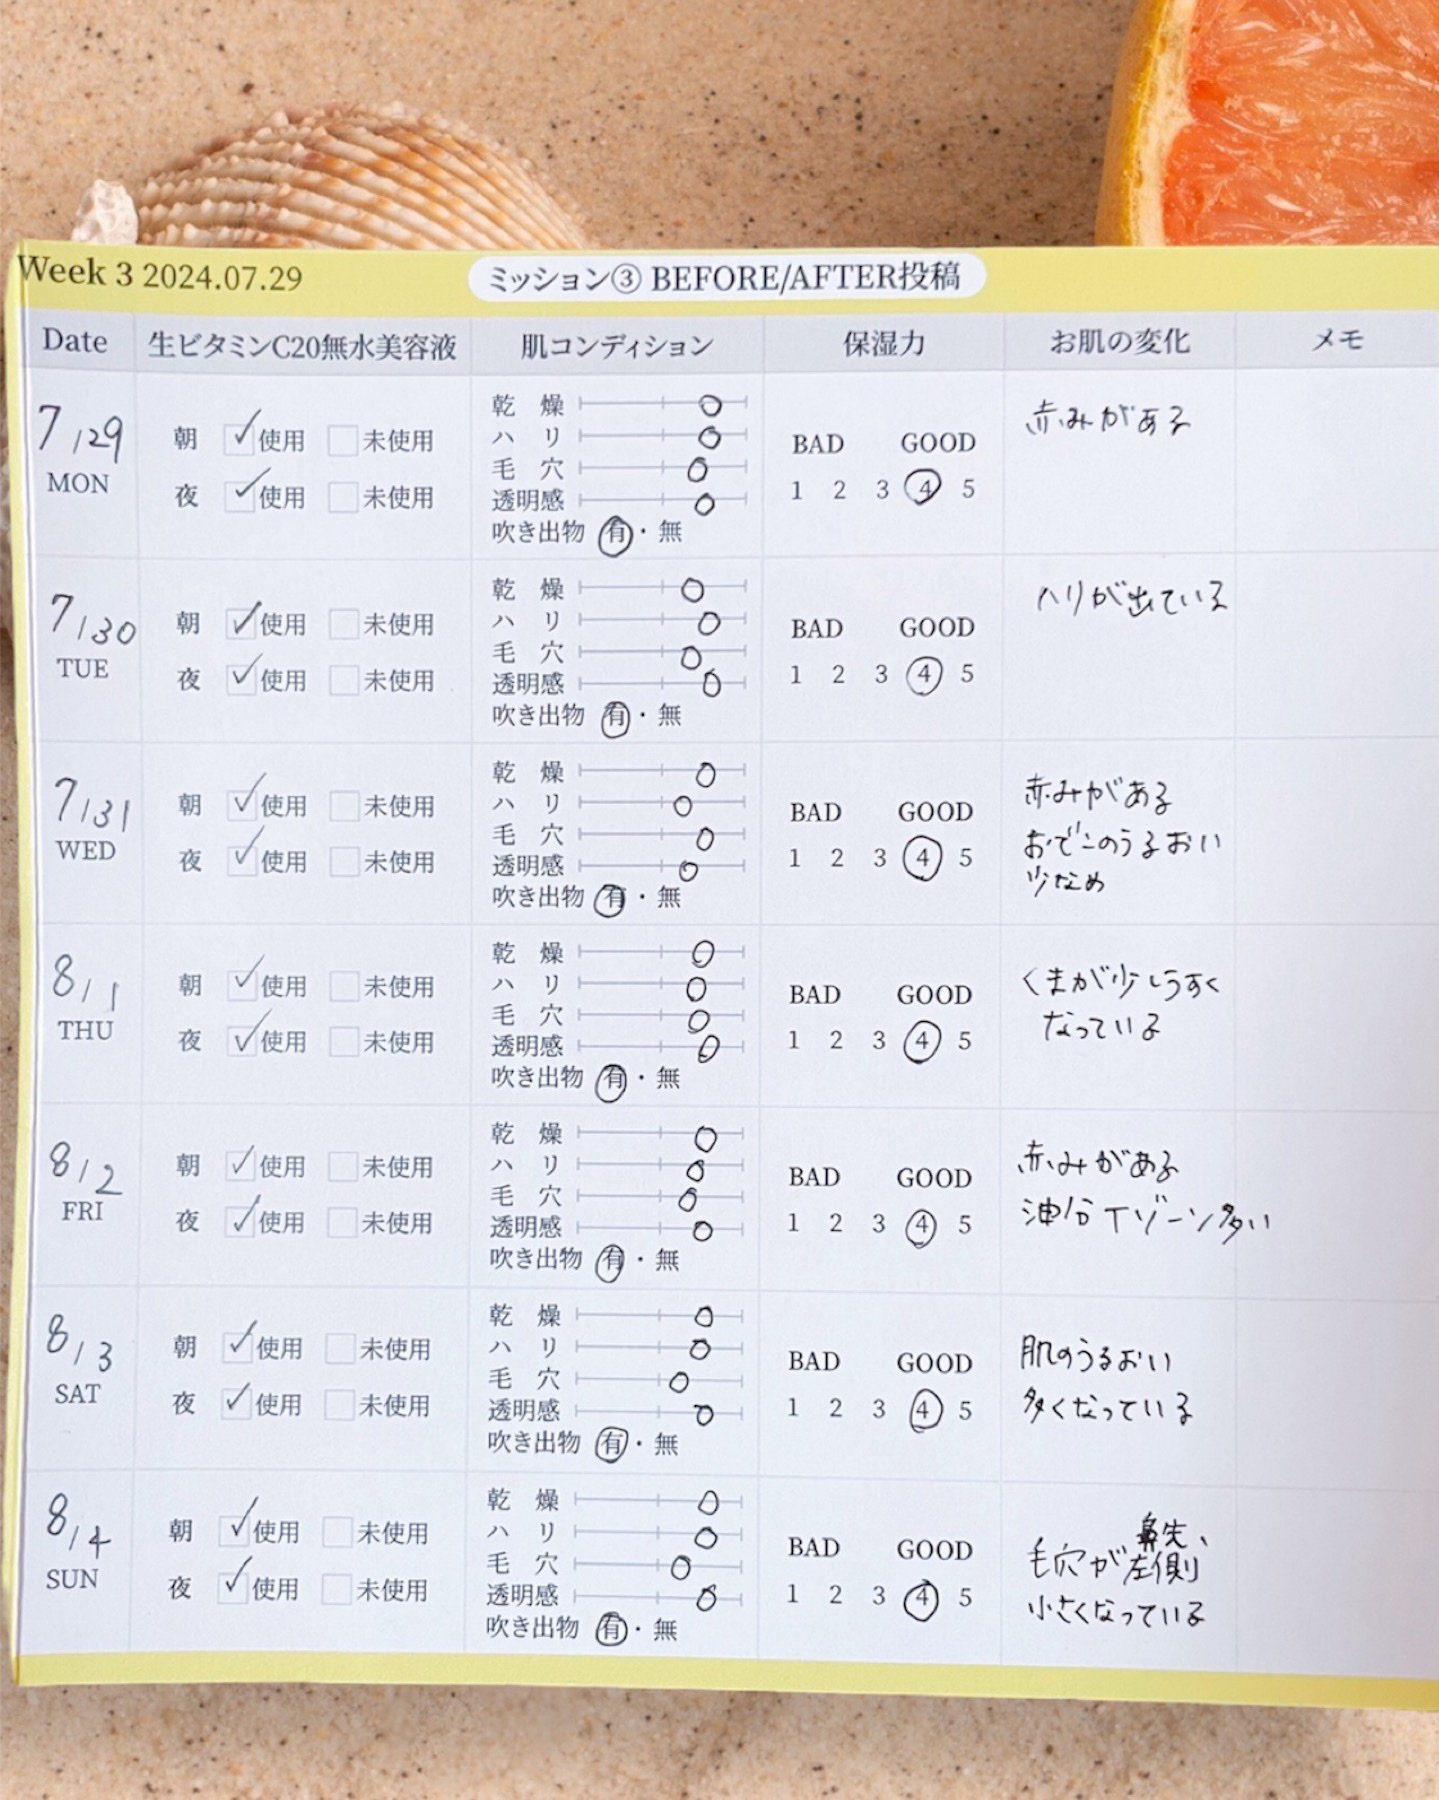 Week 3 2024.07.29
ミッション③ BEFORE/AFTER投稿
Date 生ビタミンC20無水美容液 肌コンディション 保湿力 お肌の変化 メモ
7/29
MON
朝 使用 未使用
夜 使用 未使用
乾燥
ハリ
毛穴
透明感
吹き出物 有・無
BAD GOOD
1 2 3 4 5
赤みがある
7/30
TUE
朝 使用 未使用
夜 使用 未使用
乾燥
ハリ
毛穴
透明感
吹き出物 有・無
BAD GOOD
1 2 3 4 5
ハリが出ている
7/31
WED
朝 使用 未使用
夜 使用 未使用
乾燥
ハリ
毛穴
透明感
吹き出物 有・無
BAD GOOD
1 2 3 4 5
赤みがある
おでこのうるおい
少なめ
8/1
THU
朝 使用 未使用
夜 使用 未使用
乾燥
ハリ
毛穴
透明感
吹き出物 有・無
BAD GOOD
1 2 3 4 5
くまが少しうすく
なっている
8/2
FRI
朝 使用 未使用
夜 使用 未使用
乾燥
ハリ
毛穴
透明感
吹き出物 有・無
BAD GOOD
1 2 3 4 5
赤みがある
油分Tゾーン多い
8/3
SAT
朝 使用 未使用
夜 使用 未使用
乾燥
ハリ
毛穴
透明感
吹き出物 有・無
BAD GOOD
1 2 3 4 5
肌のうるおい
多くなっている
8/4
SUN
朝 使用 未使用
夜 使用 未使用
乾燥
ハリ
毛穴
透明感
吹き出物 有・無
BAD GOOD
1 2 3 4 5
鼻先、
毛穴が左側
小さくなっている